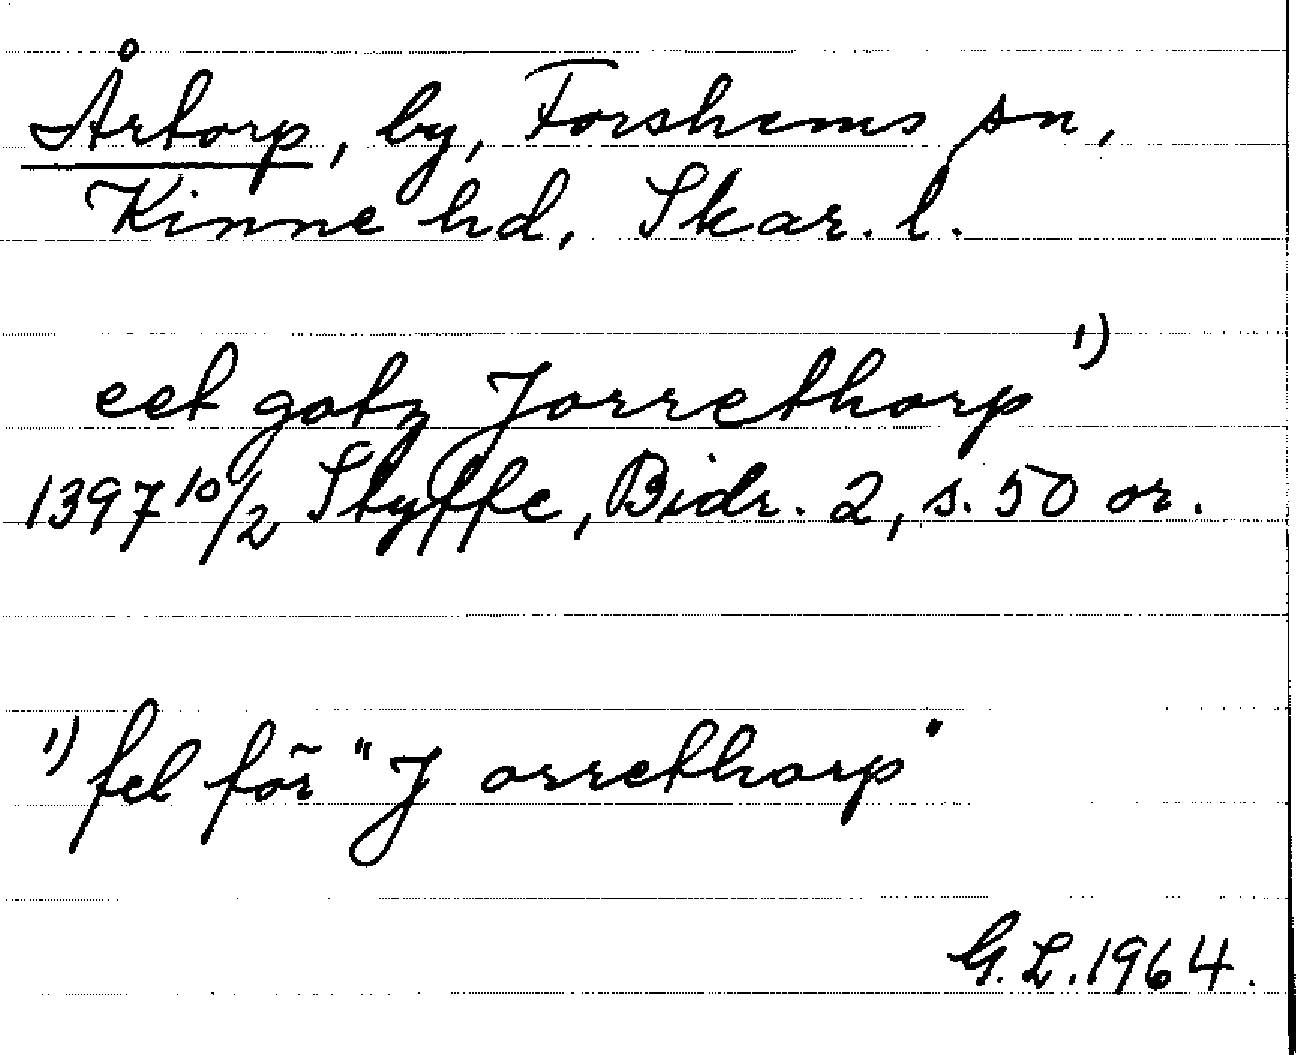 Årtorp, by, Forshems sn,
Kinne hd, Skar. l.
eet gotz Jorrethorp 1)
1397 10/2 Styffe, Bidr. 2, s. 50 or.
1) fel för "J orrethorp"
G. L. 1964.